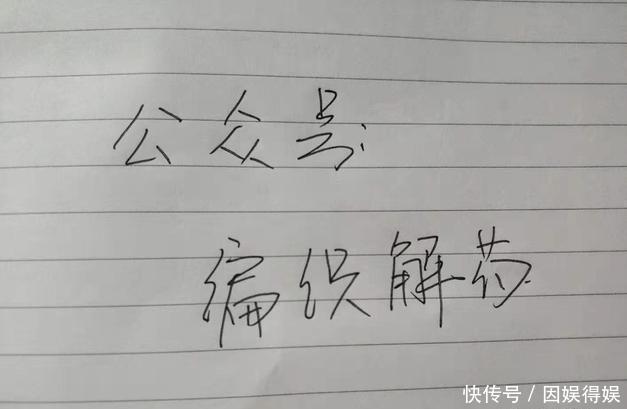 公众号:
编织解药
快传号 / 因娱得娱